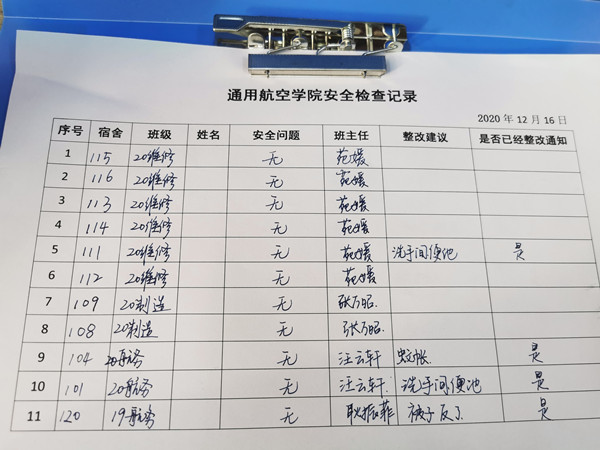 通用航空学院安全检查记录
2020 年 12 月 16 日
序号 宿舍 班级 姓名 安全问题 班主任 整改建议 是否已经整改通知
1 115 20维修 无 苑媛
2 116 20维修 无 苑媛
3 113 20维修 无 苑媛
4 114 20维修 无 苑媛
5 111 20维修 无 苑媛 洗手间便池 是
6 112 20维修 无 苑媛
7 109 20制造 无 张万昭
8 108 20制造 无 张万昭
9 104 20航务 无 汪云轩 蚊帐 是
10 101 20航务 无 汪云轩 洗手间便池 是
11 120 19航务 无 耿振菲 被子反了 是